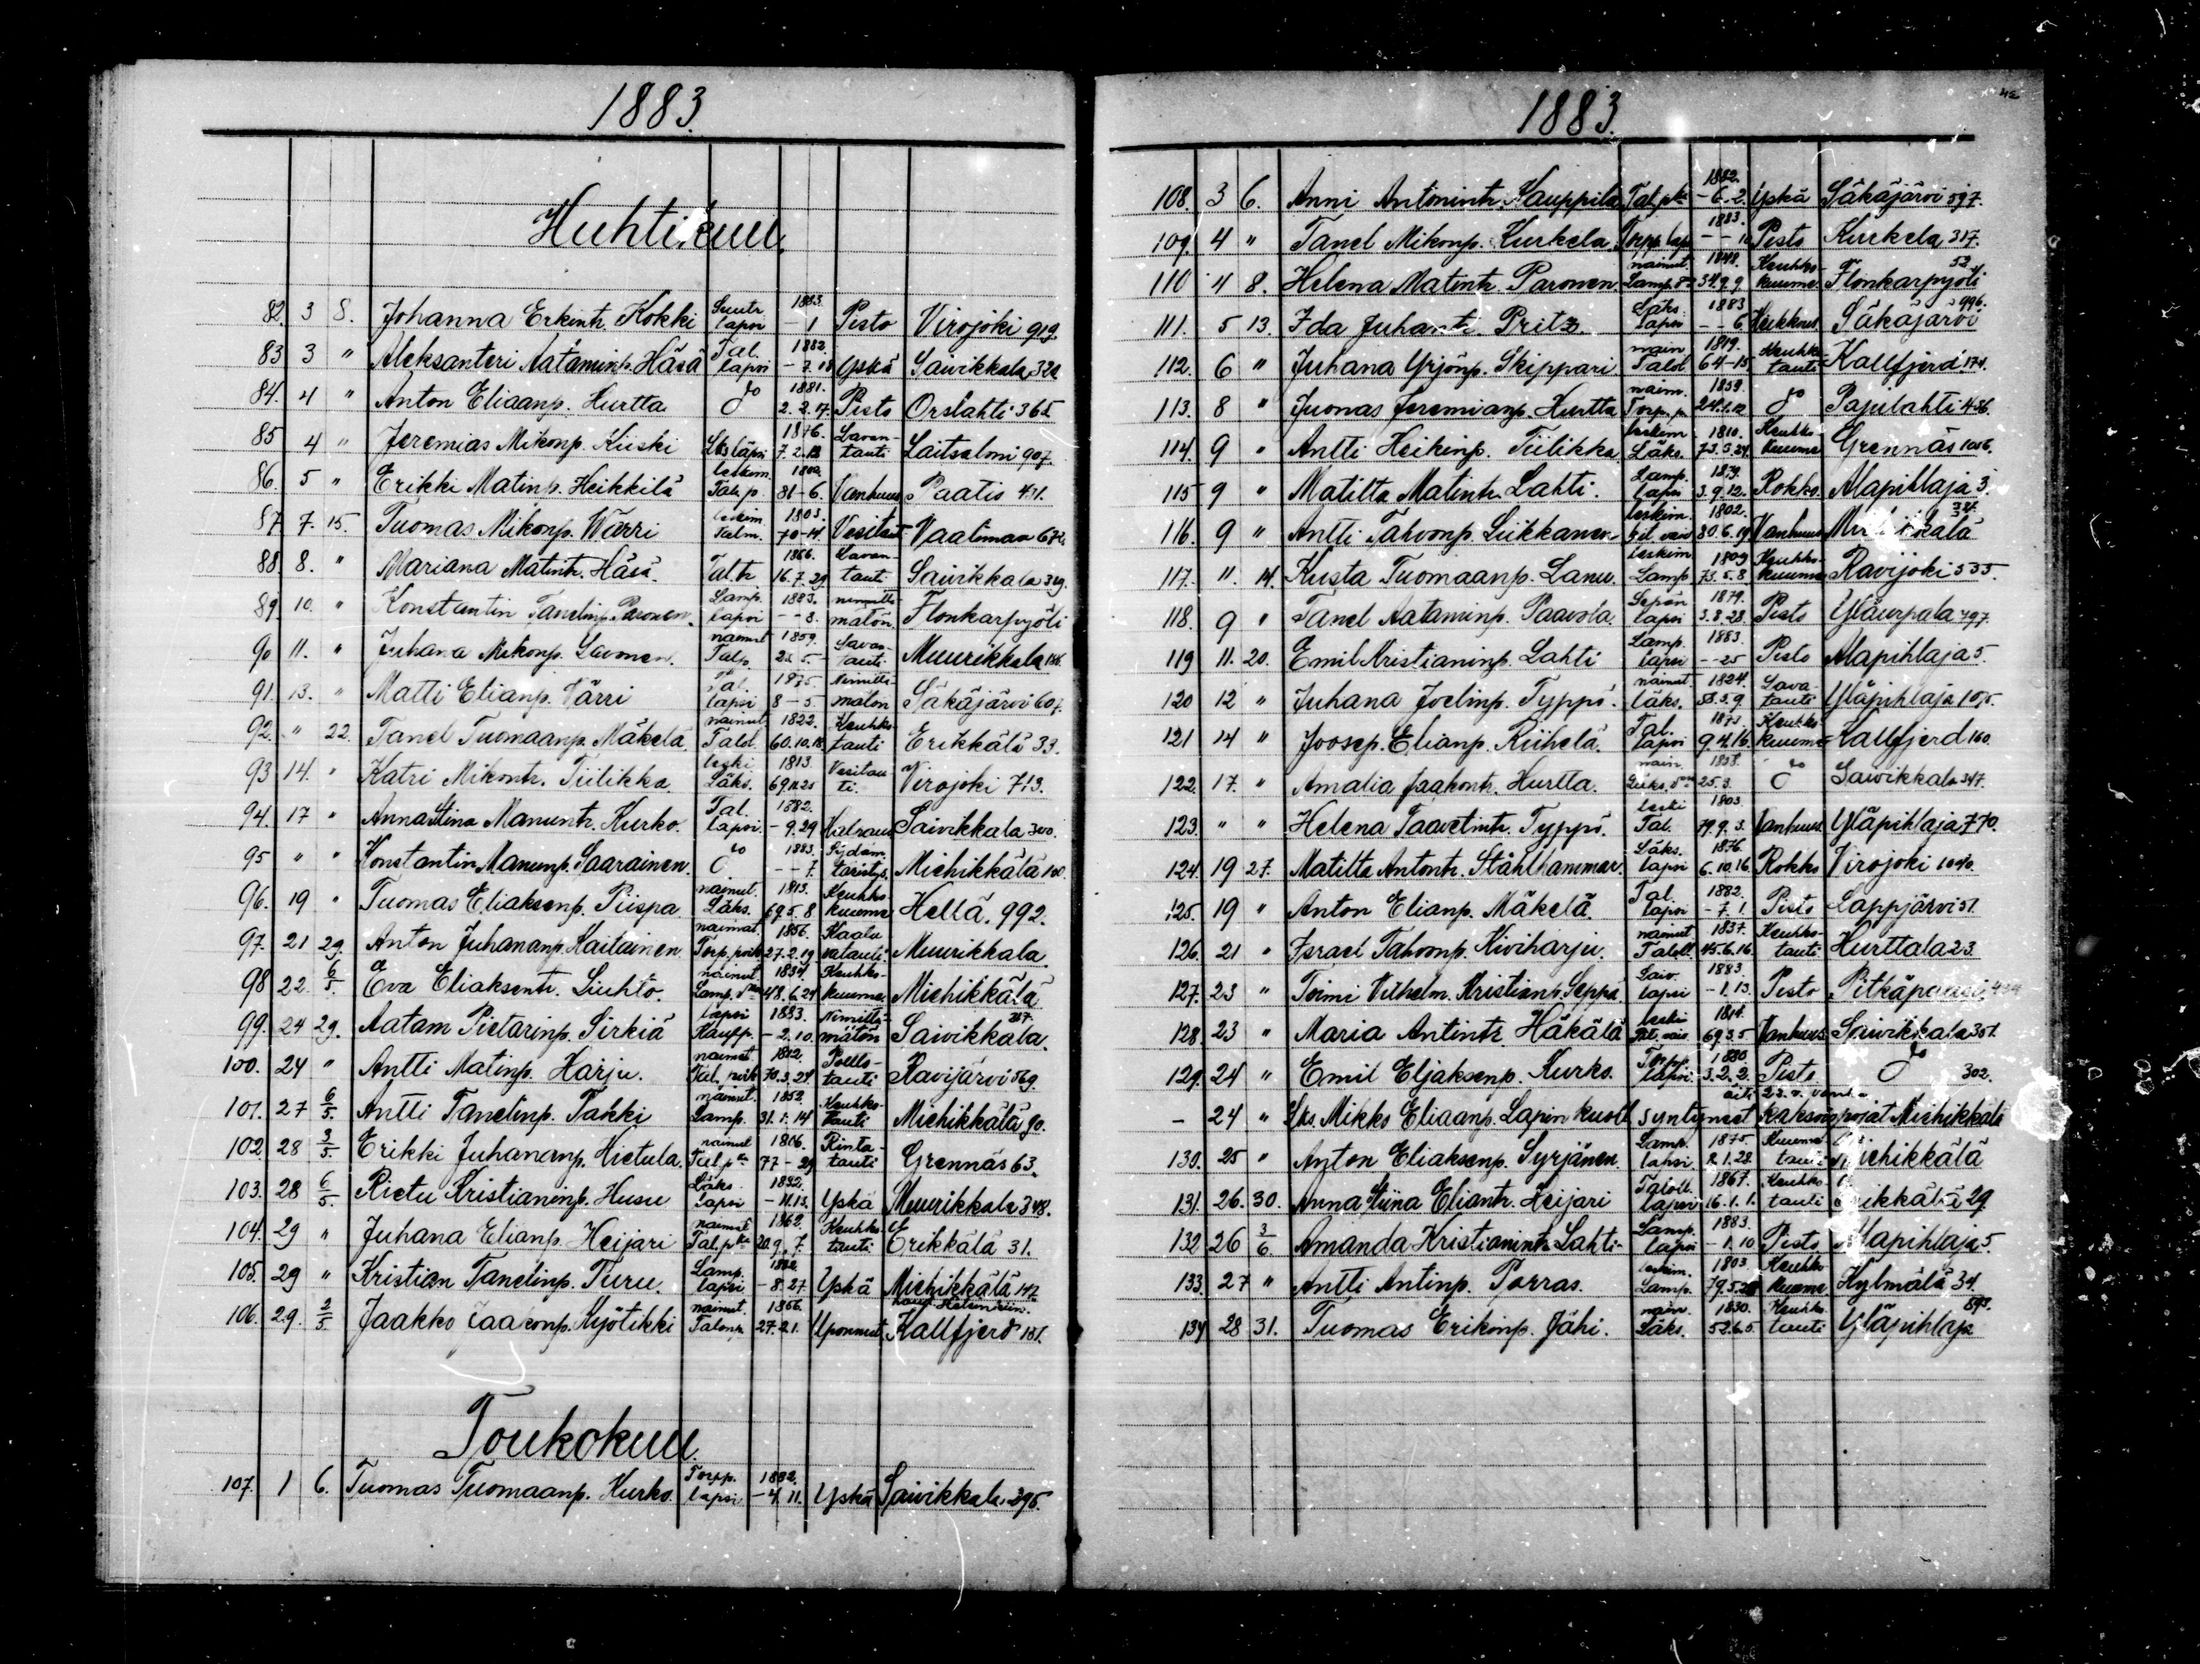 1883.
Huhtikuu.
82. 3 8. Johanna Erkintr. Kokki Suutr. lapsi 1883. - 1 Pisto Virojoki 919.
83 3 " Aleksanteri Aataminp. Häsä Tal. lapsi 1882. - 7.18 Yskä Säivikkala 321
84. 4 " Anton Eliaanp. Hurtta do 1881. 2.2.17. Pisto Orslahti 365
85 4 " Jeremias Mikonp. Kiiski Läks lapsi 1876. 7.2.12 Lavan-tauti Laitsalmi 907.
86. 5 " Erikki Matinp. Heikkilä leskim. Tal. p. 1802 81-6. Vanhuus Paatio 431.
87 7. 15. Tuomas Mikonp. Wärri leskim. Talm. 1803. 70-14. Vesitaut Vaalimaa 672
88. 8. " Mariana Matintr. Häsä. Tal.tr. 1866. 16.7.29 Lavan-tauti Säivikkala 329.
89. 10. " Konstantin Tanelinp. Paronen. Lamp. lapsi 1883. - - 8. nimittä-mätön. Flonkarpyöli
90 11. " Juhana Mikonp. Savonen. naimat Talp. 1859. 23.5.- Lavan-tauti Muurikkala 186.
91. 13. " Matti Elianp. Värri Tal. lapsi 1875 8-5. Nimittä-mätön Säkäjärvi 607.
92. " 22. Tanel Tuomaanp. Mäkelä naimat. Talol. 1822. 60.10.18. Keuhko-tauti Erikkälä 33.
93 14. " Katri Mikontr. Tiilikka. leski Läks. 1813 69.11.25 Vesitau ti. Virojoki 713.
94. 17 " Anna Stina Manuntr. Kurko. Tal. lapsi. 1882. - 9.29 Halvaus Säivikkala 300.
95 " " Konstantin Manunp. Saarainen. do 1883. - - 7. Sydän täristys. Miehikkälä 100.
96. 19 " Tuomas Eliaksenp. Piispa naimat. Läks. 1813. 69.5.8 Keuhko kuume Hellä. 992.
97. 21 29. Anton Juhananp. Kaitainen naimat. Torp. poik. 1856. 27.2.19 Kaatu vatauti. Muurikkala.
98 22. 6/5. Eva Eliaksentr. Suhto. naimat Lamp. 1834. 48.6.24 Keuhko-kuume Miehikkälä
99. 24 29. Aatam Pietarinp. Sirkiä lapsi Kaupp. 1883. - 2.10. Nimittä-mätön 307. Säivikkala.
100. 24 " Antti Matinp. Harju. naimat Tal. 1812. 70.3.24. Poltto-tauti Ravijärvi 569.
101. 27 6/5. Antti Tanelinp. Takki naimat. Lamp. 1852. 31.1.14 Keuhko-tauti Miehikkälä 90.
102. 28 3/5. Erikki Juhananp. Hietula. naimat Tal. p. 1806. 77-29 Rinta-tauti Grennäs 63.
103. 28 6/5. Rietu Kristianinp. Husu Läks. lapsi 1882. - 11.13. Yskä Muurikkala 348.
104. 29 " Juhana Elianp. Heijari naimat Tal. p. 1862. 20.9.7. Keuhko tauti Erikkälä 31.
105. 29 " Kristian Tanelinp. Turu. Lamp. lapsi 1882. - 8.27 Yskä Miehikkälä 147
106. 29. 2/5. Jaakko Jaakonp. Myötikki naimat. 1856. 27.2.1. Uponnut Kallfjerd 181.
Toukokuu.
107. 1 6. Tuomas Tuomaanp. Kurko. Torpp. lapsi 1882. - 4.11. Yskä Säivikkala. 295.
1883.
108. 3 6. Anni Antonintr. Kauppila Tal. 1882. - 6.2. Yskä Säkäjärvi 597.
109. 4 " Tanel Mikonp. Kurkela. Torpp. lapsi 1883. - - 10 Pisto Kurkela 317.
110 4 8. Helena Matintr. Paronen naimat. Lamp. 1848. 34.9.9 Keuhko-kuume 52 Flonkarpyöli
111. 5 13. Ida Juhantr. Pritz. Läks. lapsi 1883 - - 6 Heikkous Säkäjärvi 996.
112. 6 " Juhana Yrjönp. Skippari naim Talol 1819. 64-15 Keuhko-tauti Kallfjerd 174.
113. 8 " Juonas Jeremianp. Hurtta naim. Torp. p. 1859. 24.1.12 do Papulahti 436.
114. 9 " Antti Heikinp. Tiilikka leskim Läks. 1810. 73.3.24. Keuhko-kuume Grennäs 1056.
115 9 " Matilta Matintr. Lahti. Lamp. lapsi 1879. 3.9.12. Rokko Alapihlaja 3.
116. 9 " Antti Tahvonp. Liikkanen leskim. 1802. 80.6.19 Vanhuus Miehikkälä
117. 11. 14. Kusta Tuomaanp. Lanu. leskim Lamp 1809 73.5.8 Keuhko-kuume Ravijoki 535.
118. 9 " Tanel Aataminp. Paavola Sepän lapsi 1879. 3.8.28. Pisto Yläurpala 797.
119 11. 20. Emil Kristianinp. Lahti Lamp. lapsi 1883. - - 25 Pisto Alapihlaja 5.
120 12 " Juhana Joelinp. Typpö. naimat. läks. 1824. 58.5.9 Lava-tauti Yläpihlaja 105.
121 14 " Joosep. Elianp. Riihelä. Tal. lapsi 1873. 9.4.16. Keuhko-kuume Kallfjerd 160.
122. 17. " Amalia Jaakontr. Hurtta. nain. Läks. 1858. 25.3. do Säivikkala 347.
123. " " Helena Taavetintr. Typpö. leski Tal. 1803. 79.9.3. Vanhuus Yläpihlaja 770.
124. 19 27. Matilta Antontr. Stählhammar. Läks. lapsi 1876. 6.10.16. Rokko Virojoki 1040.
125. 19 " Anton Elianp. Mäkelä. Tal. lapsi 1882. - 7.1. Pisto Lappjärvi 51.
126. 21 " Israel Tahvonp. Kiviharju. naimat Taloll. 1837. 45.6.16. Keuhko-tauti Hurttala 23.
127. 23 " Toimi Vilhelm. Kristianp. Seppä. lapsi 1883. - 1.13. Pisto Pitkäpaasi
128. 23 " Maria Antintr. Häkälä leski 1814. 69.3.5 Vanhuus Säivikkala 351.
129. 24 " Emil Eljaksenp. Kurko. Torpp. lapsi 1880. 3.2.2. Pisto do 302.
- 24 " Läks. Mikko Eliaanp. Lapin kuoll. syntyneet kaksoispojat Miehikkälä
130. 25 " Anton Eliaksenp. Syrjänen Lamp. lapsi 1875. 8.1.28 Kuume-tauti Miehikkälä
131. 26. 30. Anna Stiina Eliantr. Heijari Taloll. lapsi 1867. 16.1.1. Keuhko tauti Erikkälä 29
132 26 3/6 Amanda Kristianintr. Lahti- Lamp. lapsi 1883. - 1.10 Pisto Alapihlaja 5.
133. 27 " Antti Antinp. Porras. leskim. Lamp. 1803 79.5.28 Keuhko kuume Kylmälä 34.
134 28 31. Tuomas Erikinp. Jähi. naim. Läks. 1830. 52.6.5 Keuhko. tauti 893. Yläpihlaja